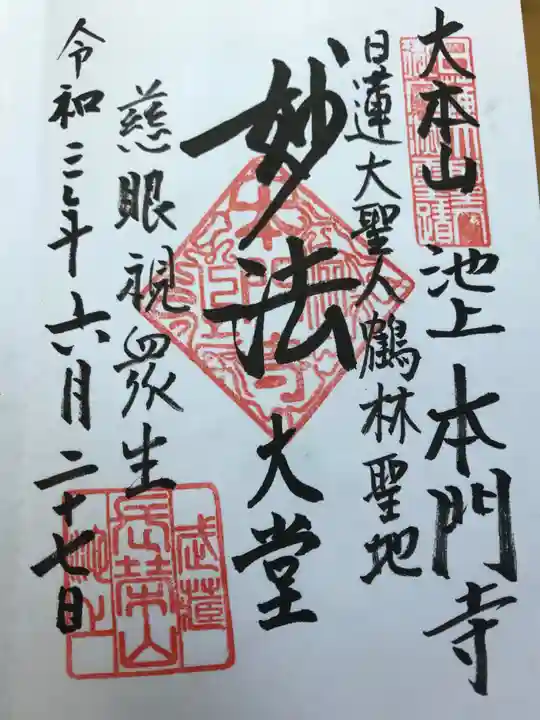 大本山 池上 本門寺
日蓮大聖人鶴林聖地
妙法
大堂
慈眼視衆生
令和三年六月二十七日
武蔵
長榮山
池上